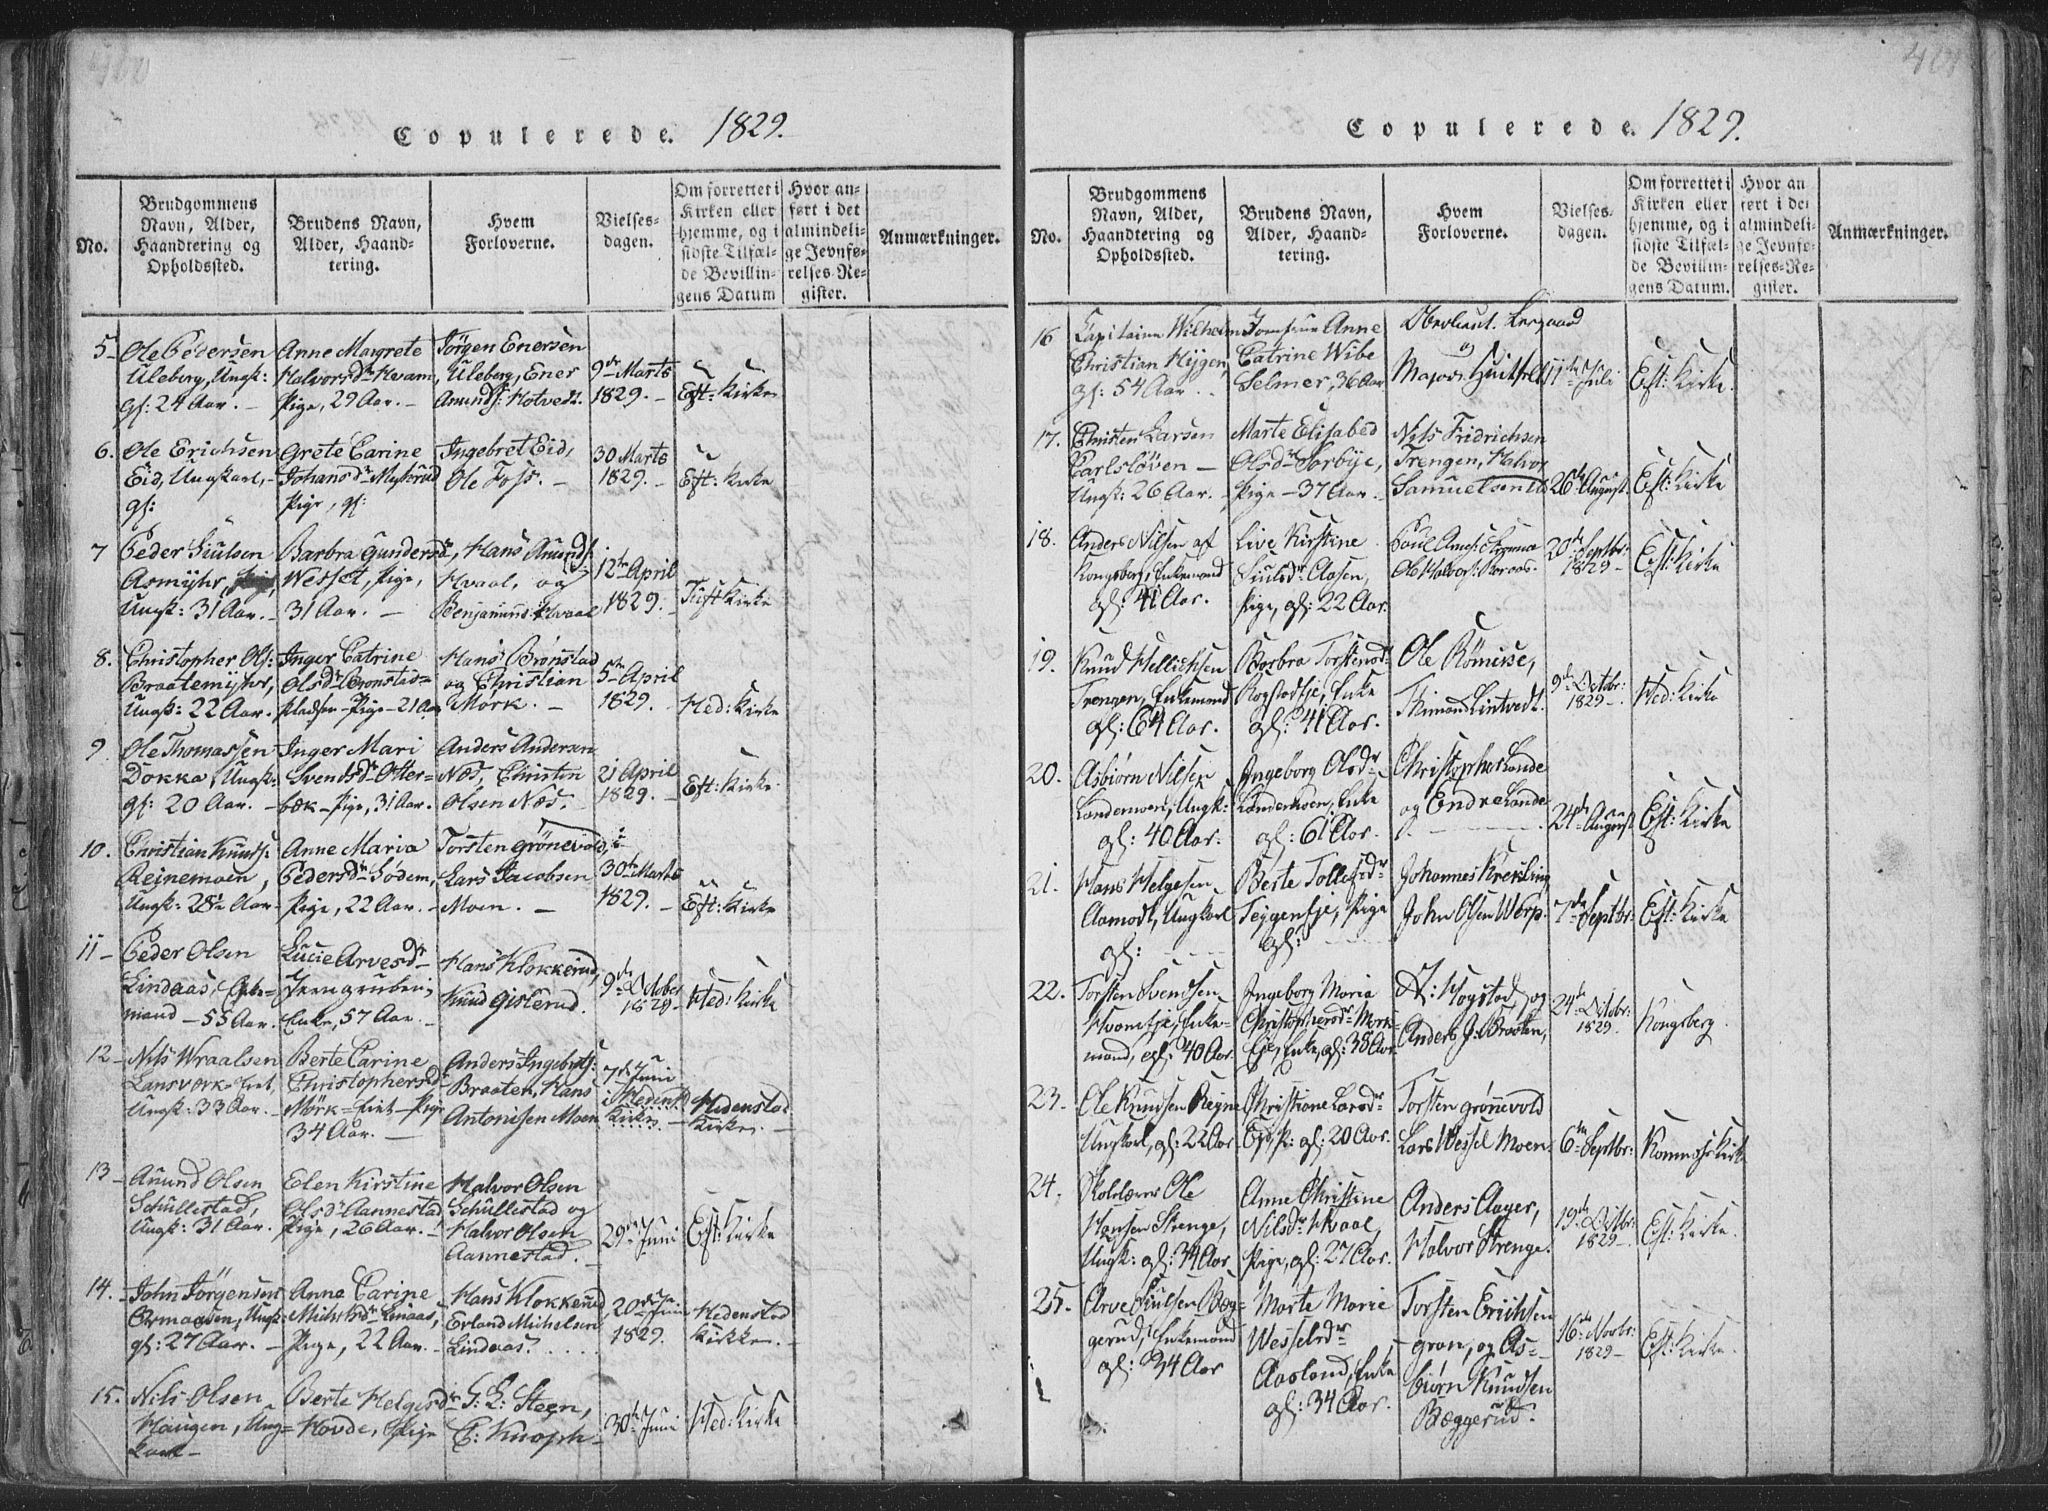 400
Copulerede. 1829.
No.
Brudgommens
Navn, Alder,
Haandtering og
Opholdssted.
Brudens Navn,
Alder, Haand-
tering.
Hvem
Forloverne.
Vielses-
dagen.
Om forrettet i
Kirken eller
hjemme, og i
sidste Tilfæl-
de Bevillin-
gens Datum
Hvor an-
ført i det
almindeli-
ge Jevnfø-
relses-Re-
gister.
Anmærkninger.
5-
Ole Pedersen
Uleberg, Ungk:
gl: 24 Aar. -
Anne Margrete
Halvorsdr Hvam,
Pige, 29 Aar. -
Jörgen Enersen
Uleberg, Ener
Amunds: Hotvedt.
9de Marts
1829. -
Eft: Kirke
6.
Ole Erichsen
Eid, Ungkarl, -
gl:
Grete Carine
Johansdr Myhrud
Pige, gl:
Ingebret Eid,
Ole Foss. -
30 Marts
1829. -
Eft: Kirke
7
Peder Siulsen
Asmyhr,
Ungk: 31 Aar. -
Barbra Gundersdr
Wessel, Pige,
31 Aar. -
Hans Amunds:
Hvaal, og
Benjamin Hvaal
12te April
1829.
Tuft Kirke
8.
Christopher Ols:
Braatemyhr,
Ungk: 22 Aar.
Inger Catrine
Olsdr Brønstad-
pladsen - Pige - 21 Aar
Hans Brønstad
og Christian
Mork. -
5te April
1829.
Hed: Kirke
9.
Ole Thomassen
Dokka, Ungk:
gl: 20 Aar. -
Inger Mari
Svendsdr Otter-
bæk - Pige, 31 Aar.
Anders Andersen
Næs, Christen
Olsen Næs.
21 April
1829. -
Eft: Kirke
10.
Christian Knuds:
Reinemoen,
Ungk: 28½ Aar.
Anne Maria
Pedersdr Södem,
Pige, 22 Aar. -
Torsten Grönevold,
Lars Jacobsen
Moen. -
30te Marts
1829. -
Eft: Kirke
11 -
Peder Olsen
Lindaas, Enke-
mand - 55 Aar.
Lucie Arvesdr
Jerngruben,
Enke, 57 Aar. -
Hans Klokkerud,
Knud Gislerud.
9de October
1829 -
Hed: Kirke
12 -
Nils Wraalsen
Lansværk-Eiet,
Ungk: 33 Aar. -
Berte Carine
Christophersdr
Mörk-Eiet - Pige
34 Aar. -
Anders Ingebrets:
Braaten, Hans
Antonisen Moen
7de Juni
i Hedenstd
Kirke. -
Hedenstad
Kirke. -
13 -
Amund Olsen
Schullestad,
Ungk: 31 Aar.
Elen Kirstine
Olsdr Aannestad
Pige, 26 Aar. -
Halvor Olsen
Schullestad og
Halvor Olsen
Aannestad. -
29de Juni
Eft: Kirke
14. -
John Jörgensen
Ormaasen, Ungk:
gl: 27 Aar. -
Anne Carine
Michelsdr Lindaas,
Pige, 22 Aar. -
Hans Klokkerud
Erland Michelsen
Lindaas.
20de Juni
1829.
Hedenstad
Kirkke. -
15.
Nils Olsen
Haugen, Ung-
karl -
Berte Helgesdr
Hovde, Pige
G: L: Steen,
C: Knoph -
30te Juni
Hed: Kirke
401
Copulerede. 1829.
No.
Brudgommens
Navn, Alder,
Haandtering og
Opholdssted.
Brudens Navn,
Alder, Haand-
tering.
Hvem
Forloverne.
Vielses-
dagen.
Om forrettet i
Kirken eller
hjemme, og i
sidste Tilfæl-
de Bevillin-
gens Datum.
Hvor an
ført i det
almindeli-
ge Jevnfø-
relses-Re-
gister.
Anmærkninger.
16
Capitaine Wilhelm
Christian Hygen,
gl: 54 Aar. .
Jomfrue Anne
Catrine Wibe
Selmer, 36 Aar
Oberlieut. Lergaard
og
Major Huitfelt
11te Juli
Eft: Kirke.
17.
Christen Larsen
Carlsløven -
Ungk: 26 Aar. -
Marte Elisabed
Olsdr Sorbye,
Pige - 37 Aar. -
Nils Fridrichsen
Trengen, Halvor
Samuelsen
26de August.
Eft: Kirke
18.
Anders Nilsen af
Kongsberg, Enkemand
gl: 41 Aar.
Live Kirstine
Siulsdr Aasen,
Pige, gl: 22 Aar.
Ole Halvors: Koraas.
20de Septbr:
1829 -
Eft: Kirke
19.
Knud Hellichsen
Trengen, Enkemand
gl: 64 Aar.
Barbra Torstensdr
Rogstadeje, Enke
gl: 41 Aar.
Ole Römisse,
Thimand Lintvedt.
9de Octbr:
1829 -
Hed: Kirke
20.
Asbiørn Nilsen
Landemoen, Ungk:
gl: 40 Aar.
Ingeborg Olsdr
Landemoen, Enke
gl: 61 Aar.
Christopher Lande
og Endre Lande
24de August
Eft: Kirke
21.
Hans Helgesen
Aamodt, Ungkarl
gl:
Berte Tollefsdr
Teigeneje, Pige
gl:
Johannes Krekling
John Olsen Werp.
7de Septbr:
Eft: Kirke
22.
Torsten Svendsen
Hvameje, Enke-
mand, gl: 40 Aar.
Ingeborg Maria
Christophersdr Mork-
Eje, Enke, gl: 38 Aar
A: Hogstad og
Anders J: Braaten,
24de Octobr:
1829.
Kongsberg.
23.
Ole Knudsen Regne
Ungkarl, gl: 22 Aar
Christiane Larsdr
P: gl: 20 Aar.
Torsten Grönevold
Lars Wessel Moen
6te Septbr:
Kommess Kirke
24.
Skolelærer Ole
Hansen Strenge,
Ungk: gl: 34 Aar
Anne Christine
Nilsdr Hvaal,
Pige, gl: 27 Aar.
Anders Aager,
Halvor Strenge.
19de Octbr:
1829 -
Eft: Kirke.
25.
Arve Siulsen Bæg-
gerud, Enkemand
gl: 34 Aar
Marte Marie
Wesselsdr
Aasland, Enke
gl: 34 Aar.
Torsten Erichsen
gran, og As-
biørn Knudsen
Bæggerud.
16de Novbr:
1829 -
Eft: Kirke.